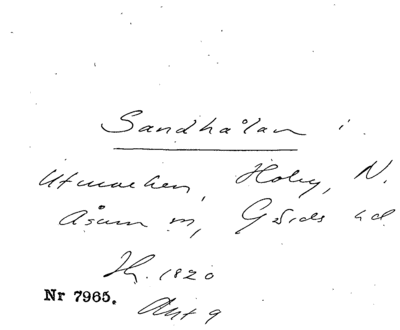 Sandhålan i
Utmarken, Hoby, N.
Åsum sn, Gärds hd
Nr 7965.
Akt 9